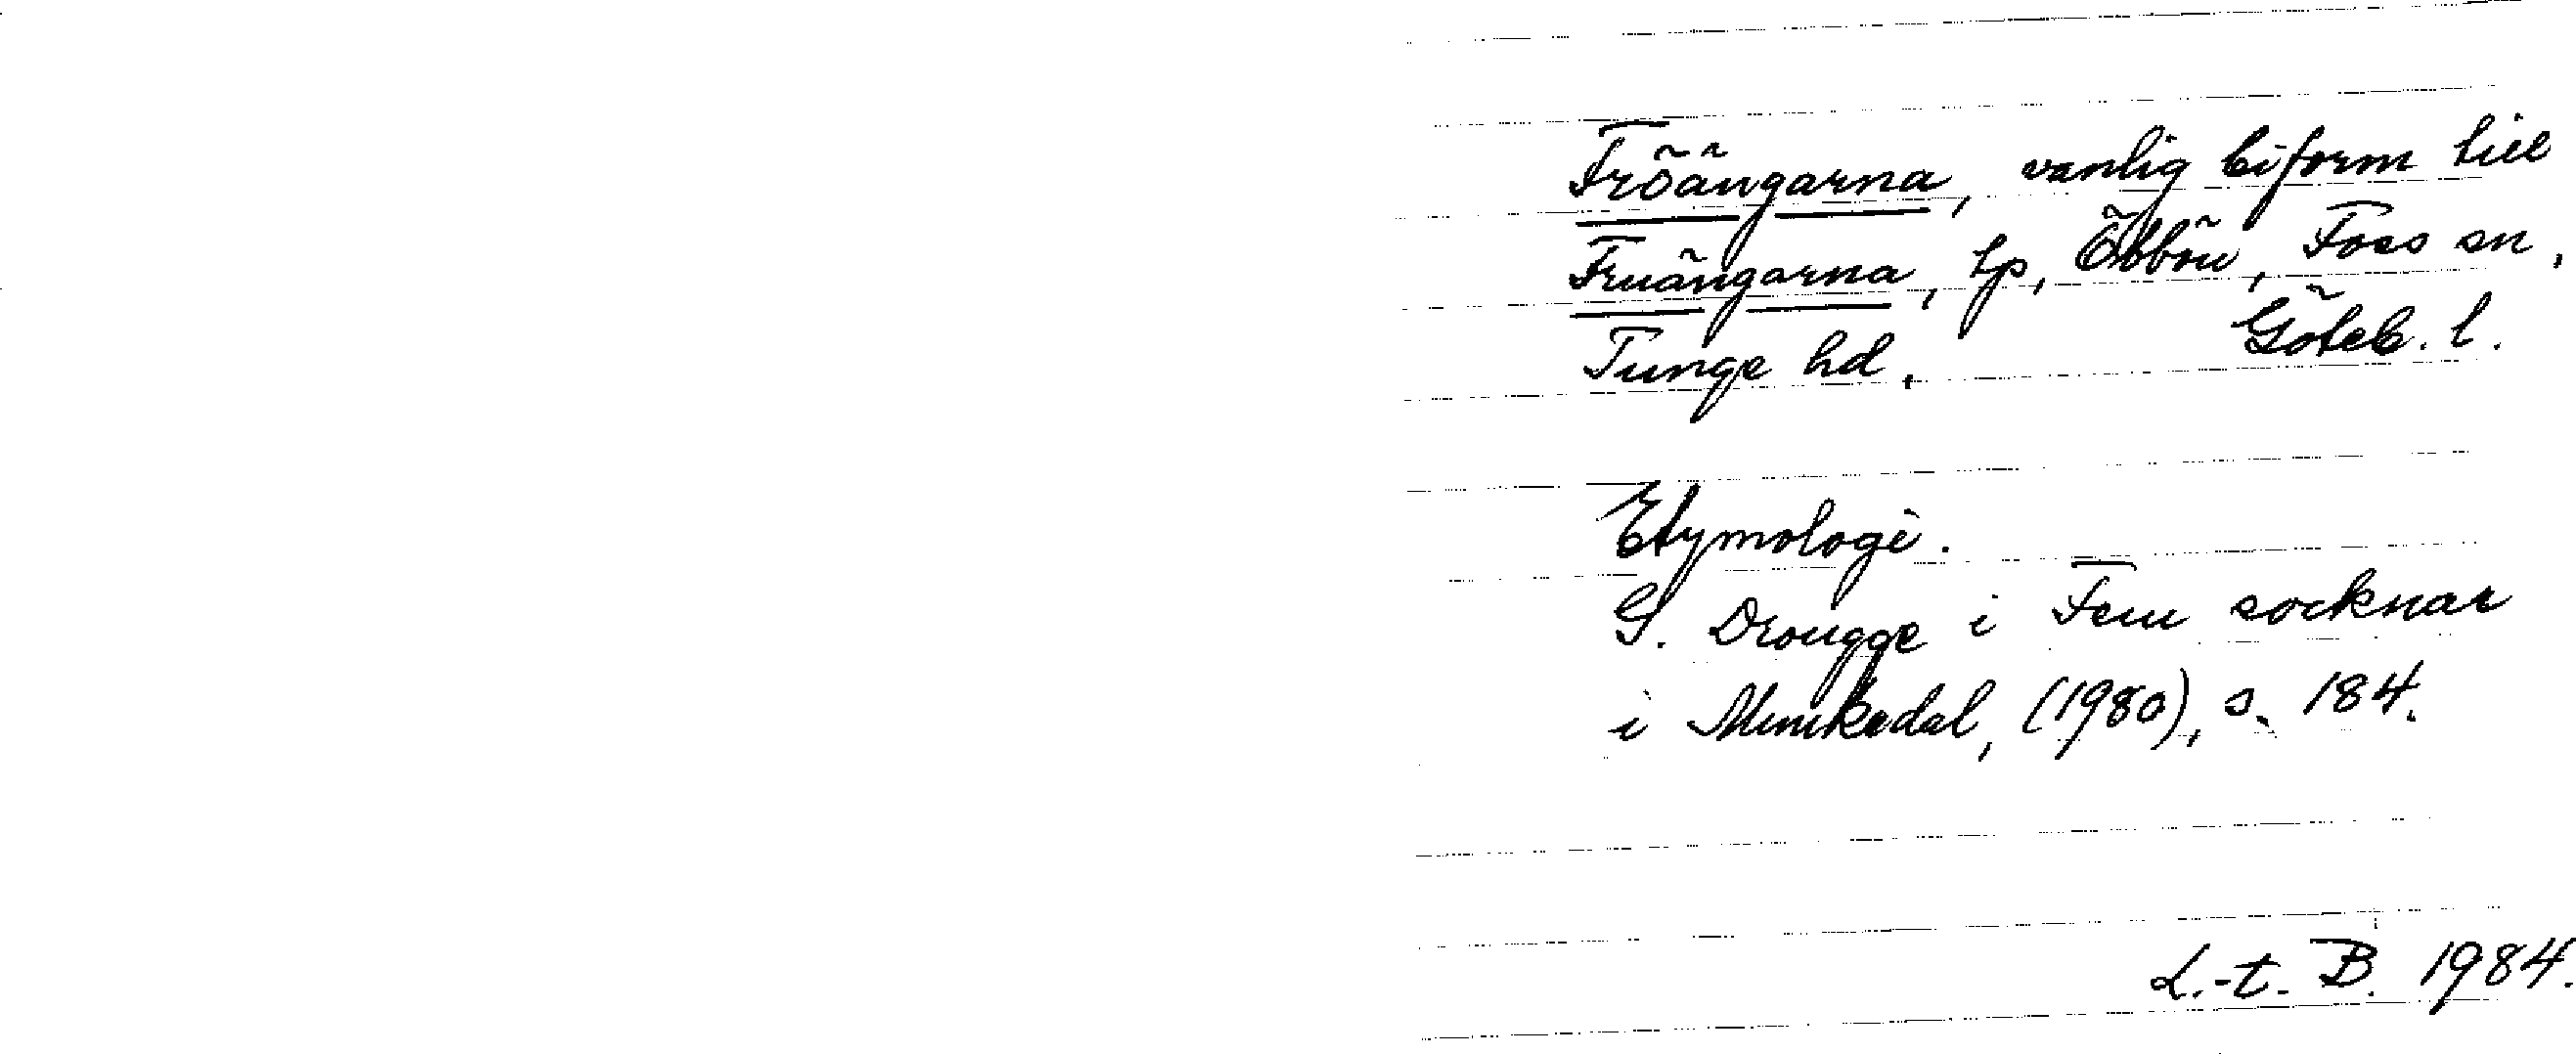 Fröängarna, vanlig biform till
Fruängarna, tp, Öbbön, Foss sn,
Tunge hd, Göteb. l.
Etymologi.
G. Drougge i Fem socknar
i Munkedal, (1980), s. 184.
L.-t. B. 1984.